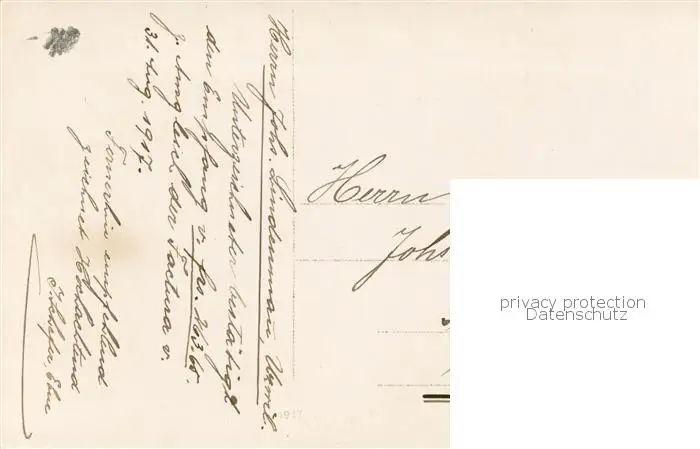 Herrn Johs. Lindenmann,
Unterzeichneter bestätigt
den Empfang v. frs. 163.60
z. Ausgleich der Factura v.
31. Aug. 1917.
Fernerhin empfehlend
zeichnet Hochachtend
Herrn
Johs
1917
privacy protection
Datenschutz